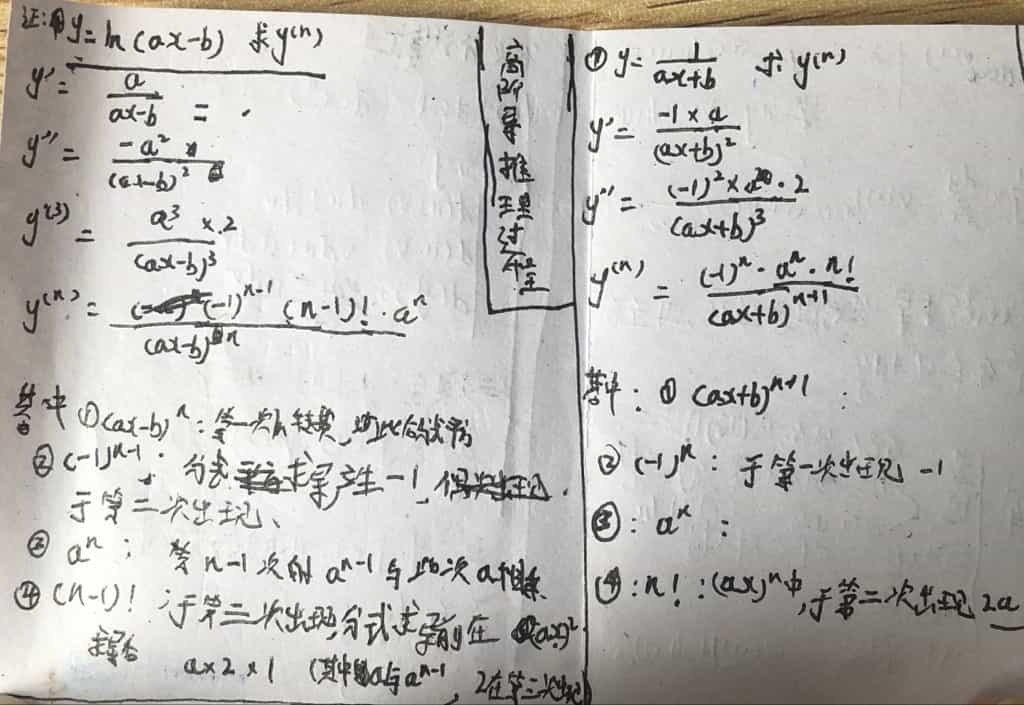 证:① y=ln(ax-b) 求y⁽ⁿ⁾
y'= a/(ax-b) =
y''= -a²/(ax-b)²
y⁽³⁾= a³×2/(ax-b)³
y⁽ⁿ⁾= (-1)ⁿ⁻¹(n-1)!·aⁿ/(ax-b)ⁿ
其中 ①(ax-b)ⁿ: 第一次
② (-1)ⁿ⁻¹: 分式求导产生-1,
于第二次出现、
③ aⁿ: 第n-1次的aⁿ⁻¹与此次a相乘
④ (n-1)!: 于第三次出现,分式求导前在(ax)²
求导后 a×2×1 (其中a与aⁿ⁻¹, 2在第三次出现)
高阶导推理过程
① y= 1/(ax+b) 求y⁽ⁿ⁾
y'= -1×a/(ax+b)²
y''= (-1)²×a²·2/(ax+b)³
y⁽ⁿ⁾= (-1)ⁿ·aⁿ·n!/(ax+b)ⁿ⁺¹
其中: ① (ax+b)ⁿ⁺¹:
② (-1)ⁿ: 于第一次出现 -1
③: aⁿ:
④: n!: (ax)ⁿ中,于第二次出现 2a